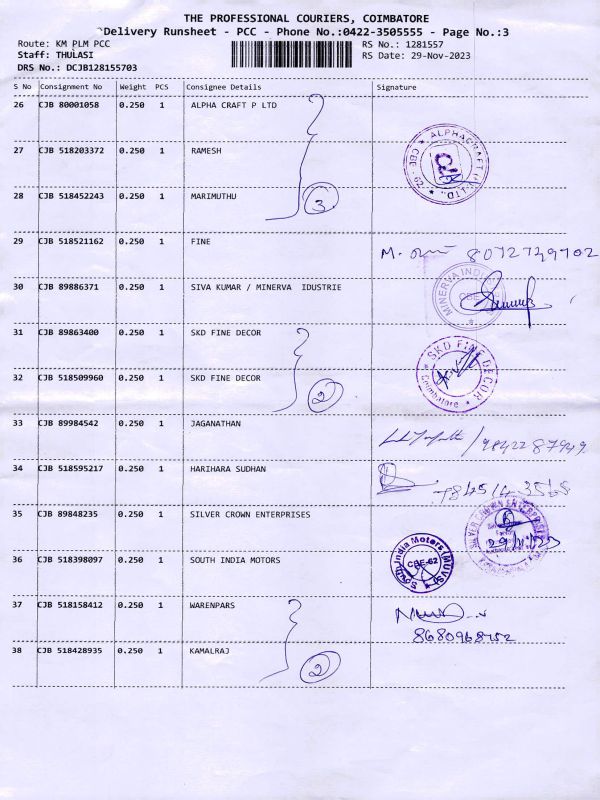 THE PROFESSIONAL COURIERS, COIMBATORE
Delivery Runsheet - PCC - Phone No.:0422-3505555 - Page No.:3
Route: KM PLM PCC RS No.: 1281557
Staff: THULASI RS Date: 29-Nov-2023
DRS No.: DCJB128155703
S No Consignment No Weight PCS Consignee Details Signature
26 CJB 80001058 0.250 1 ALPHA CRAFT P LTD
ALPHACRAFT (P) LTD. CBE - 62
27 CJB 518203372 0.250 1 RAMESH
28 CJB 518452243 0.250 1 MARIMUTHU
3
29 CJB 518521162 0.250 1 FINE
30 CJB 89886371 0.250 1 SIVA KUMAR / MINERVA IDUSTRIE
MINERVA
31 CJB 89863400 0.250 1 SKD FINE DECOR
SKD FINE DECOR Coimbatore
32 CJB 518509960 0.250 1 SKD FINE DECOR
2
33 CJB 89984542 0.250 1 JAGANATHAN
9842287949
34 CJB 518595217 0.250 1 HARIHARA SUDHAN
35 CJB 89848235 0.250 1 SILVER CROWN ENTERPRISES
36 CJB 518398097 0.250 1 SOUTH INDIA MOTORS
South India Motors (MUVS) CBE-62
37 CJB 518158412 0.250 1 WARENPARS
38 CJB 518428935 0.250 1 KAMALRAJ
2